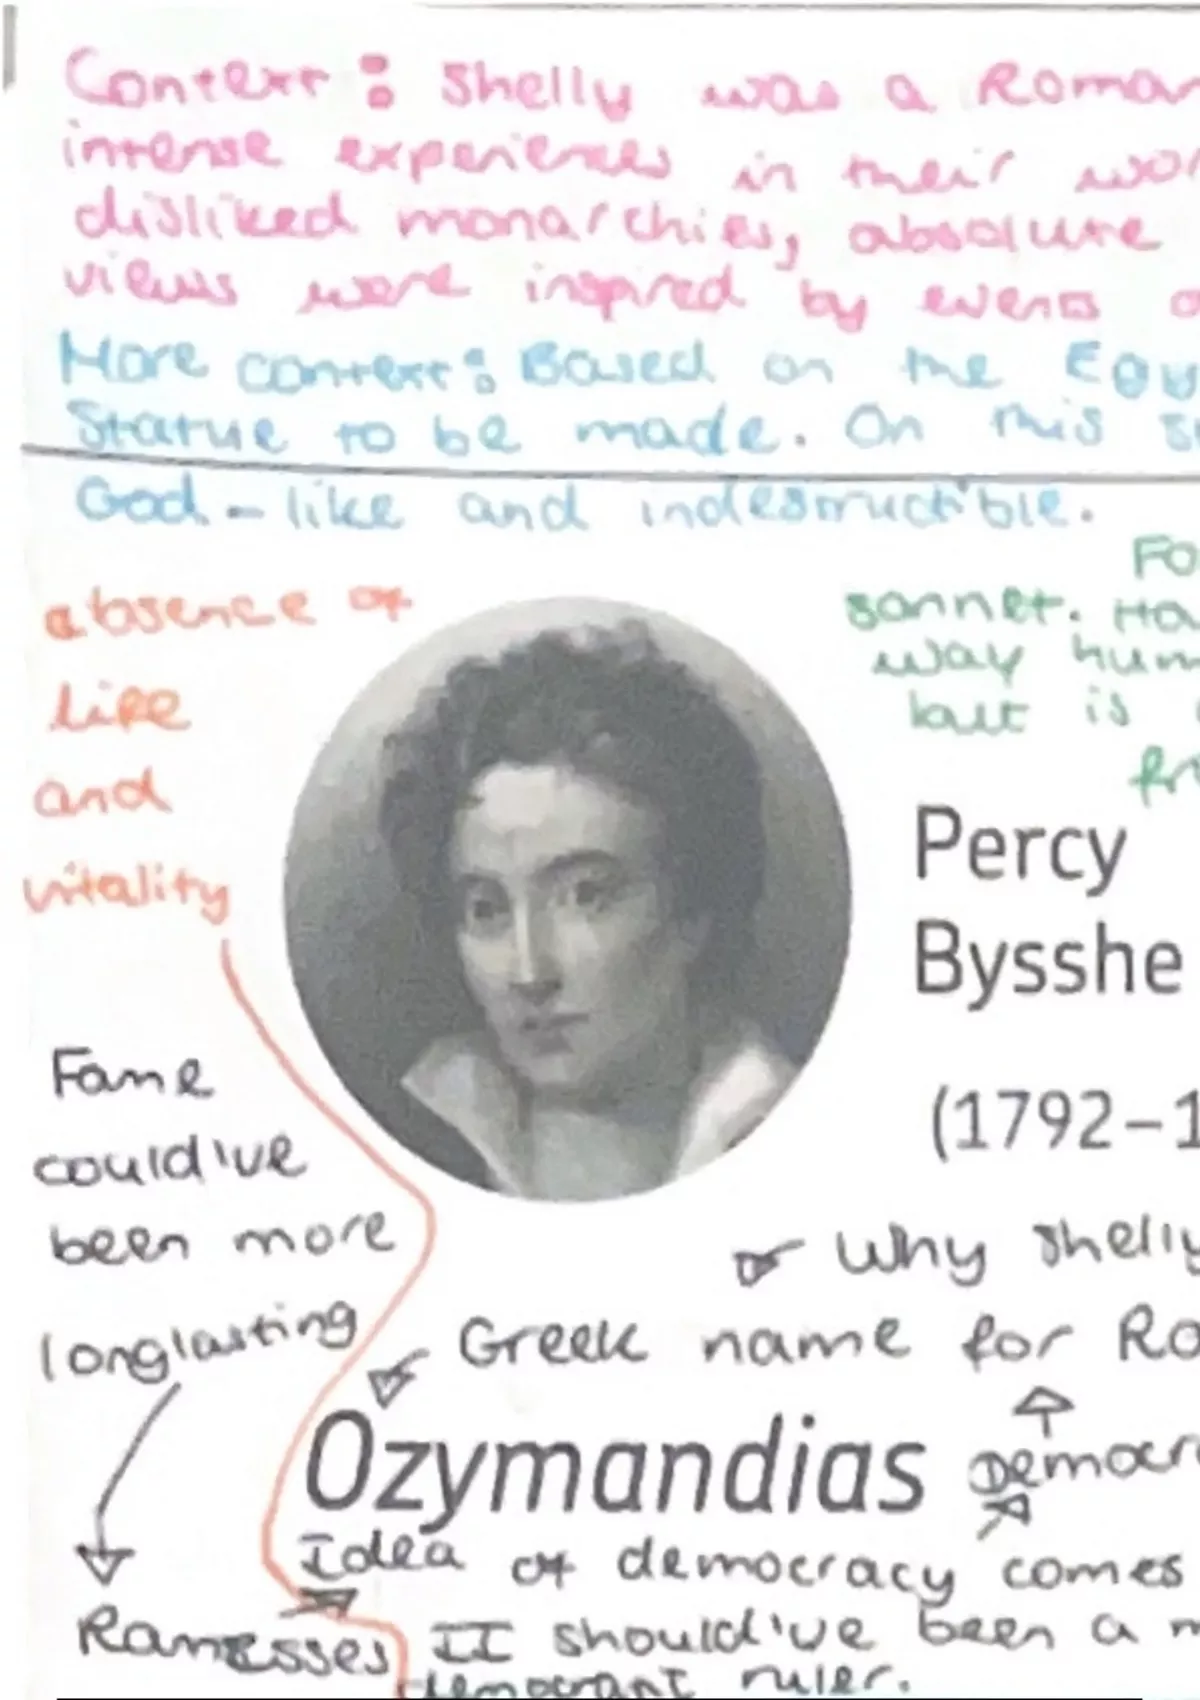 Context: Shelly was a Roman
intense experiences in their wor
disliked monarchies, absolute
views were inspired by events o
More context: Based on the Egy
Statue to be made. On this s
God-like and indestructible.
Fo
sonnet. Ha
way hum
but is
fr
absence of
life
and
vitality
Percy
Bysshe
(1792-1
Fame
could've
been more
longlasting
Why Shelly
Greek name for Ra
Ozymandias
Democr
Idea of democracy comes
Ramesses II should've been a m
democrant ruler.